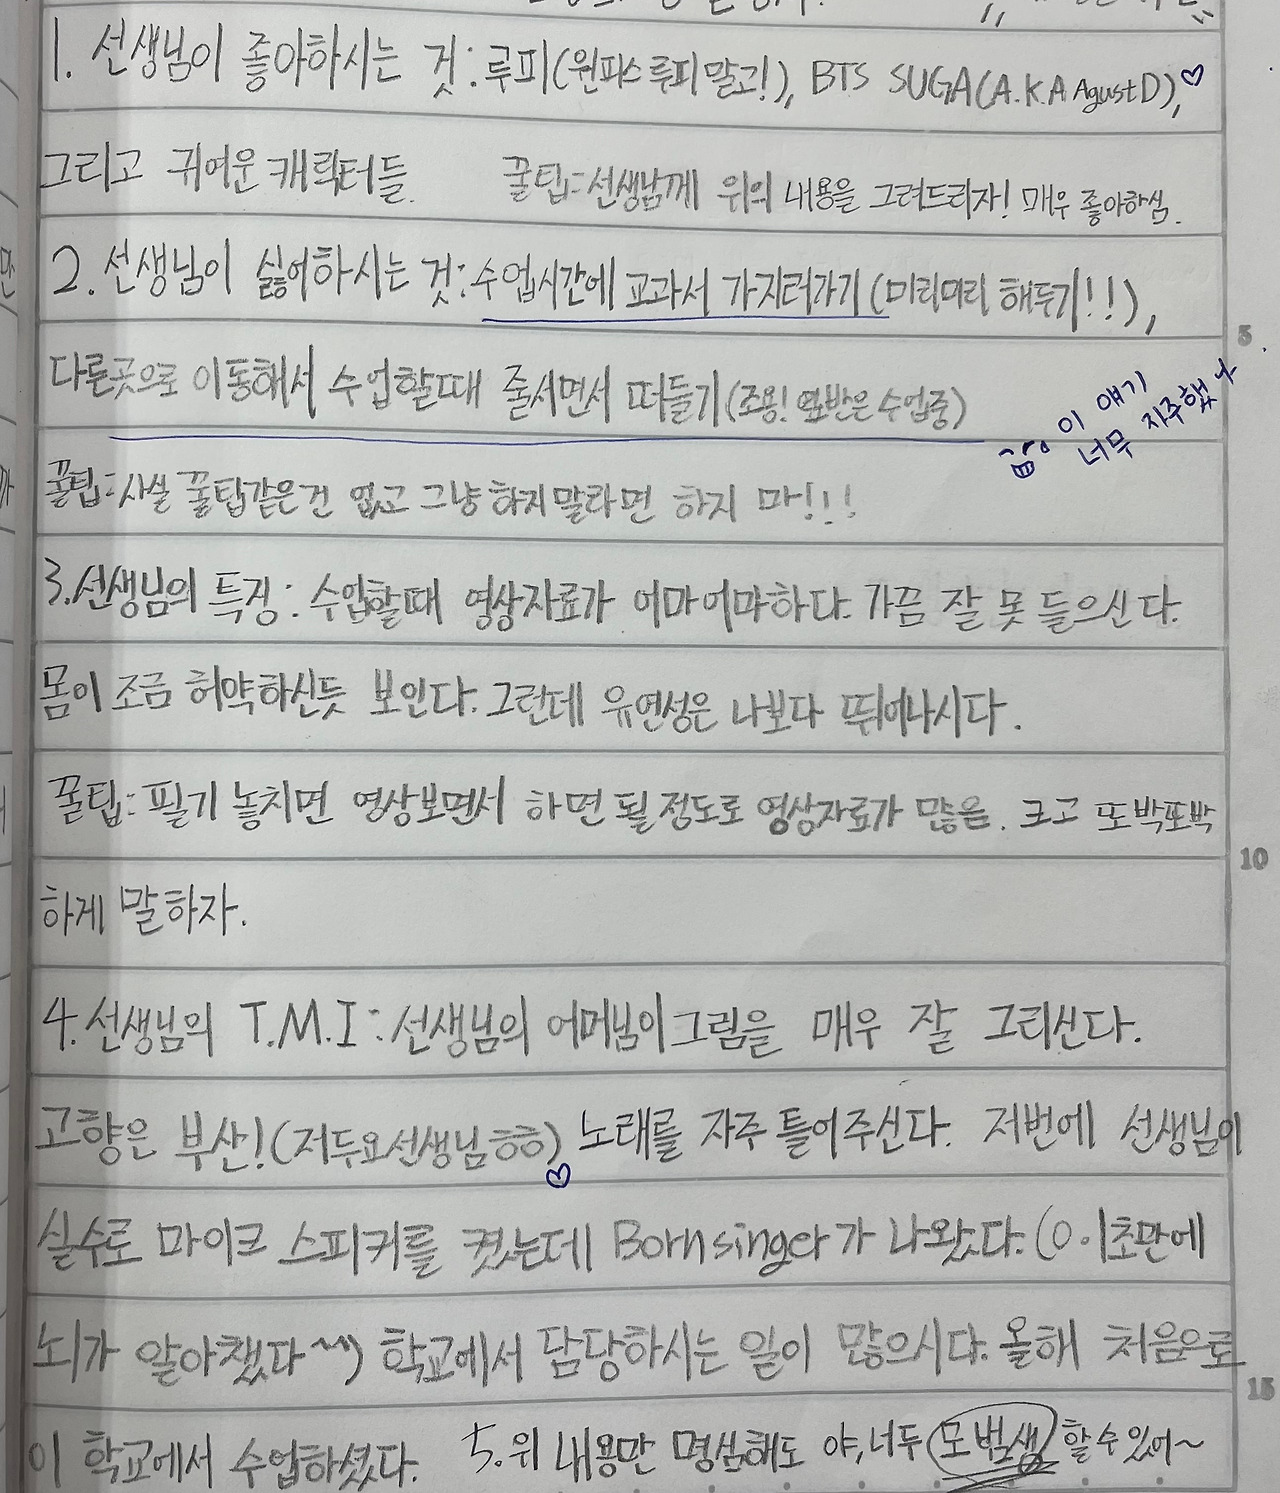 1. 선생님이 좋아하시는 것: 루피(원피스 루피 말고!), BTS SUGA(A.K.A AgustD),♡
그리고 귀여운 캐릭터들. 꿀팁: 선생님께 위의 내용을 그려드리자! 매우 좋아하심.
2. 선생님이 싫어하시는 것: 수업시간에 교과서 가지러가기(미리미리 해두기!!),
5
다른곳으로 이동해서 수업할때 줄서면서 떠들기(조용! 옆반은 수업중)
이 얘기
너무 자주했나
꿀팁: 사실 꿀팁같은건 없고 그냥 하지말라면 하지 마!!!
3. 선생님의 특징: 수업할때 영상자료가 어마어마하다. 가끔 잘 못 들으신다.
몸이 조금 허약하신듯 보인다. 그런데 유연성은 나보다 뛰어나시다.
꿀팁: 필기 놓치면 영상보면서 하면 될 정도로 영상자료가 많음. 크고 또박또박
10
하게 말하자.
4. 선생님의 T.M.I: 선생님의 어머님이 그림을 매우 잘 그리신다.
고향은 부산!(저두요 선생님 ㅎㅎ)♡ 노래를 자주 틀어주신다. 저번에 선생님이
실수로 마이크 스피커를 켰는데 Born singer가 나왔다. (0.1초만에
뇌가 알아챘다^^) 학교에서 담당하시는 일이 많으시다. 올해 처음으로
15
이 학교에서 수업하셨다. 5. 위 내용만 명심해도 야, 너두 모범생 할 수 있어~